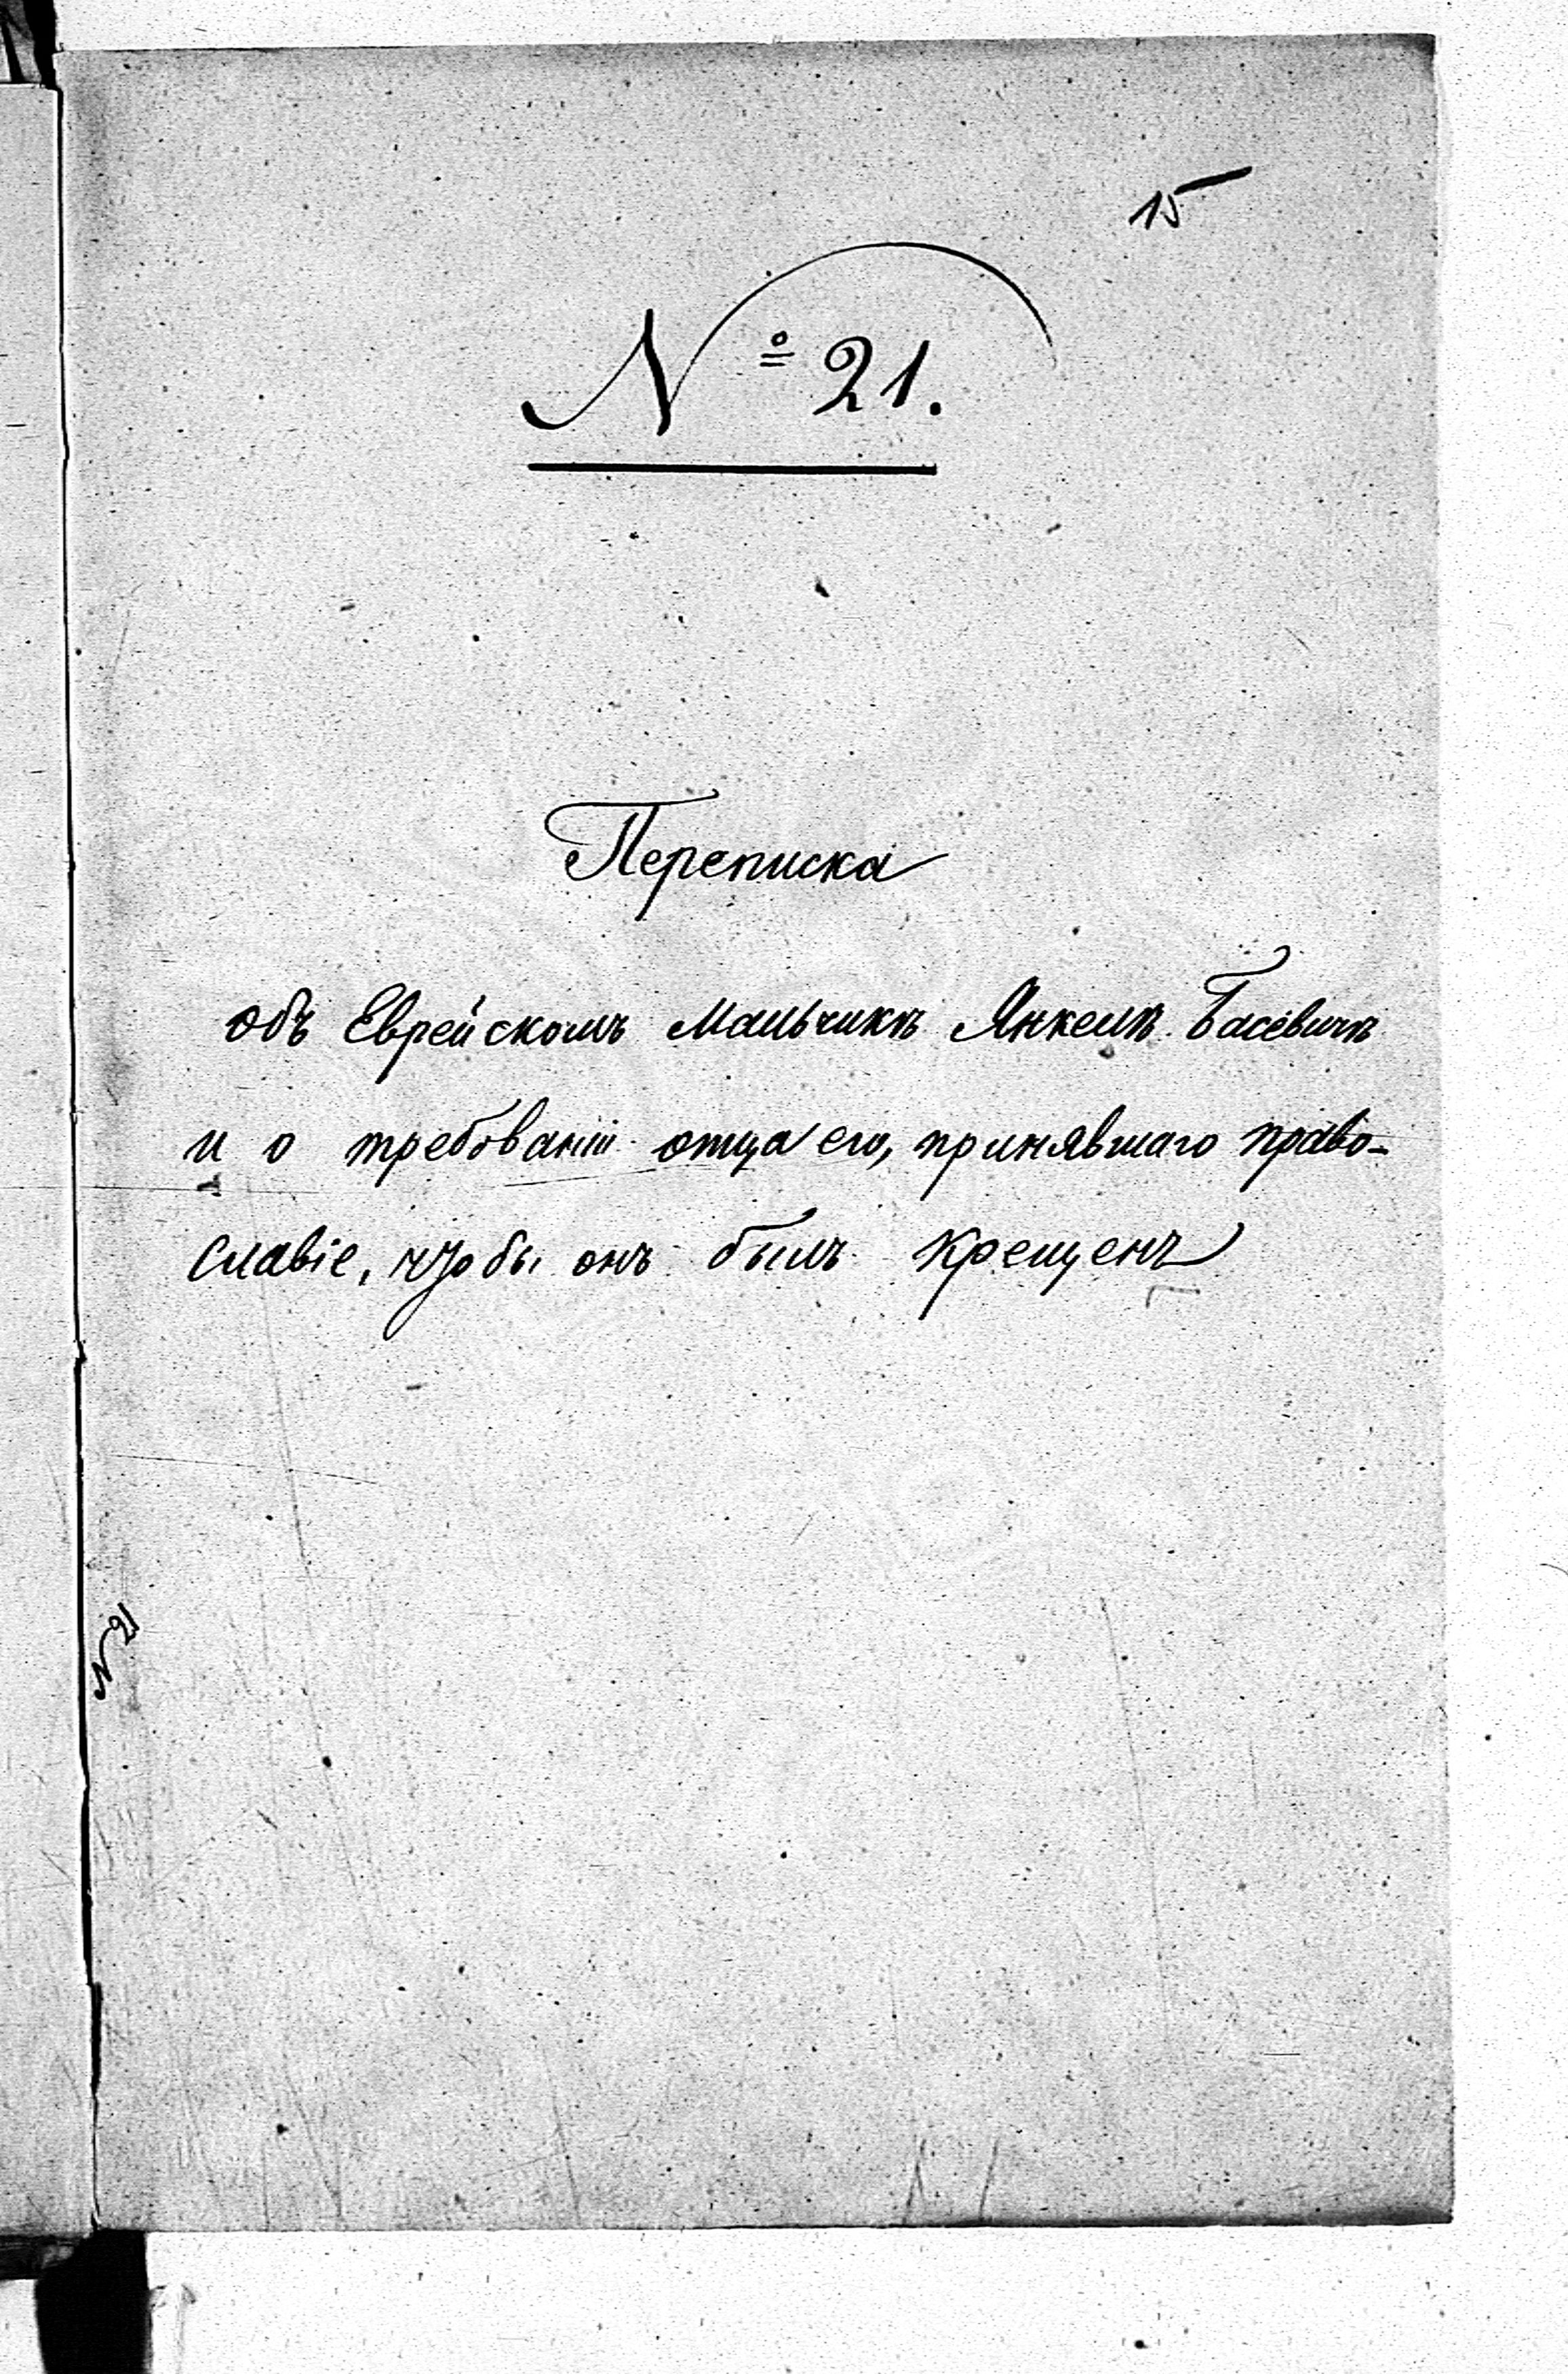 15
№ 21.
Переписка
объ Еврейскомъ Мальчикѣ Янкелѣ Басевичѣ
и о требованіи отца его, принявшаго право-
славіе, чтобы онъ былъ крещенъ
№ 21